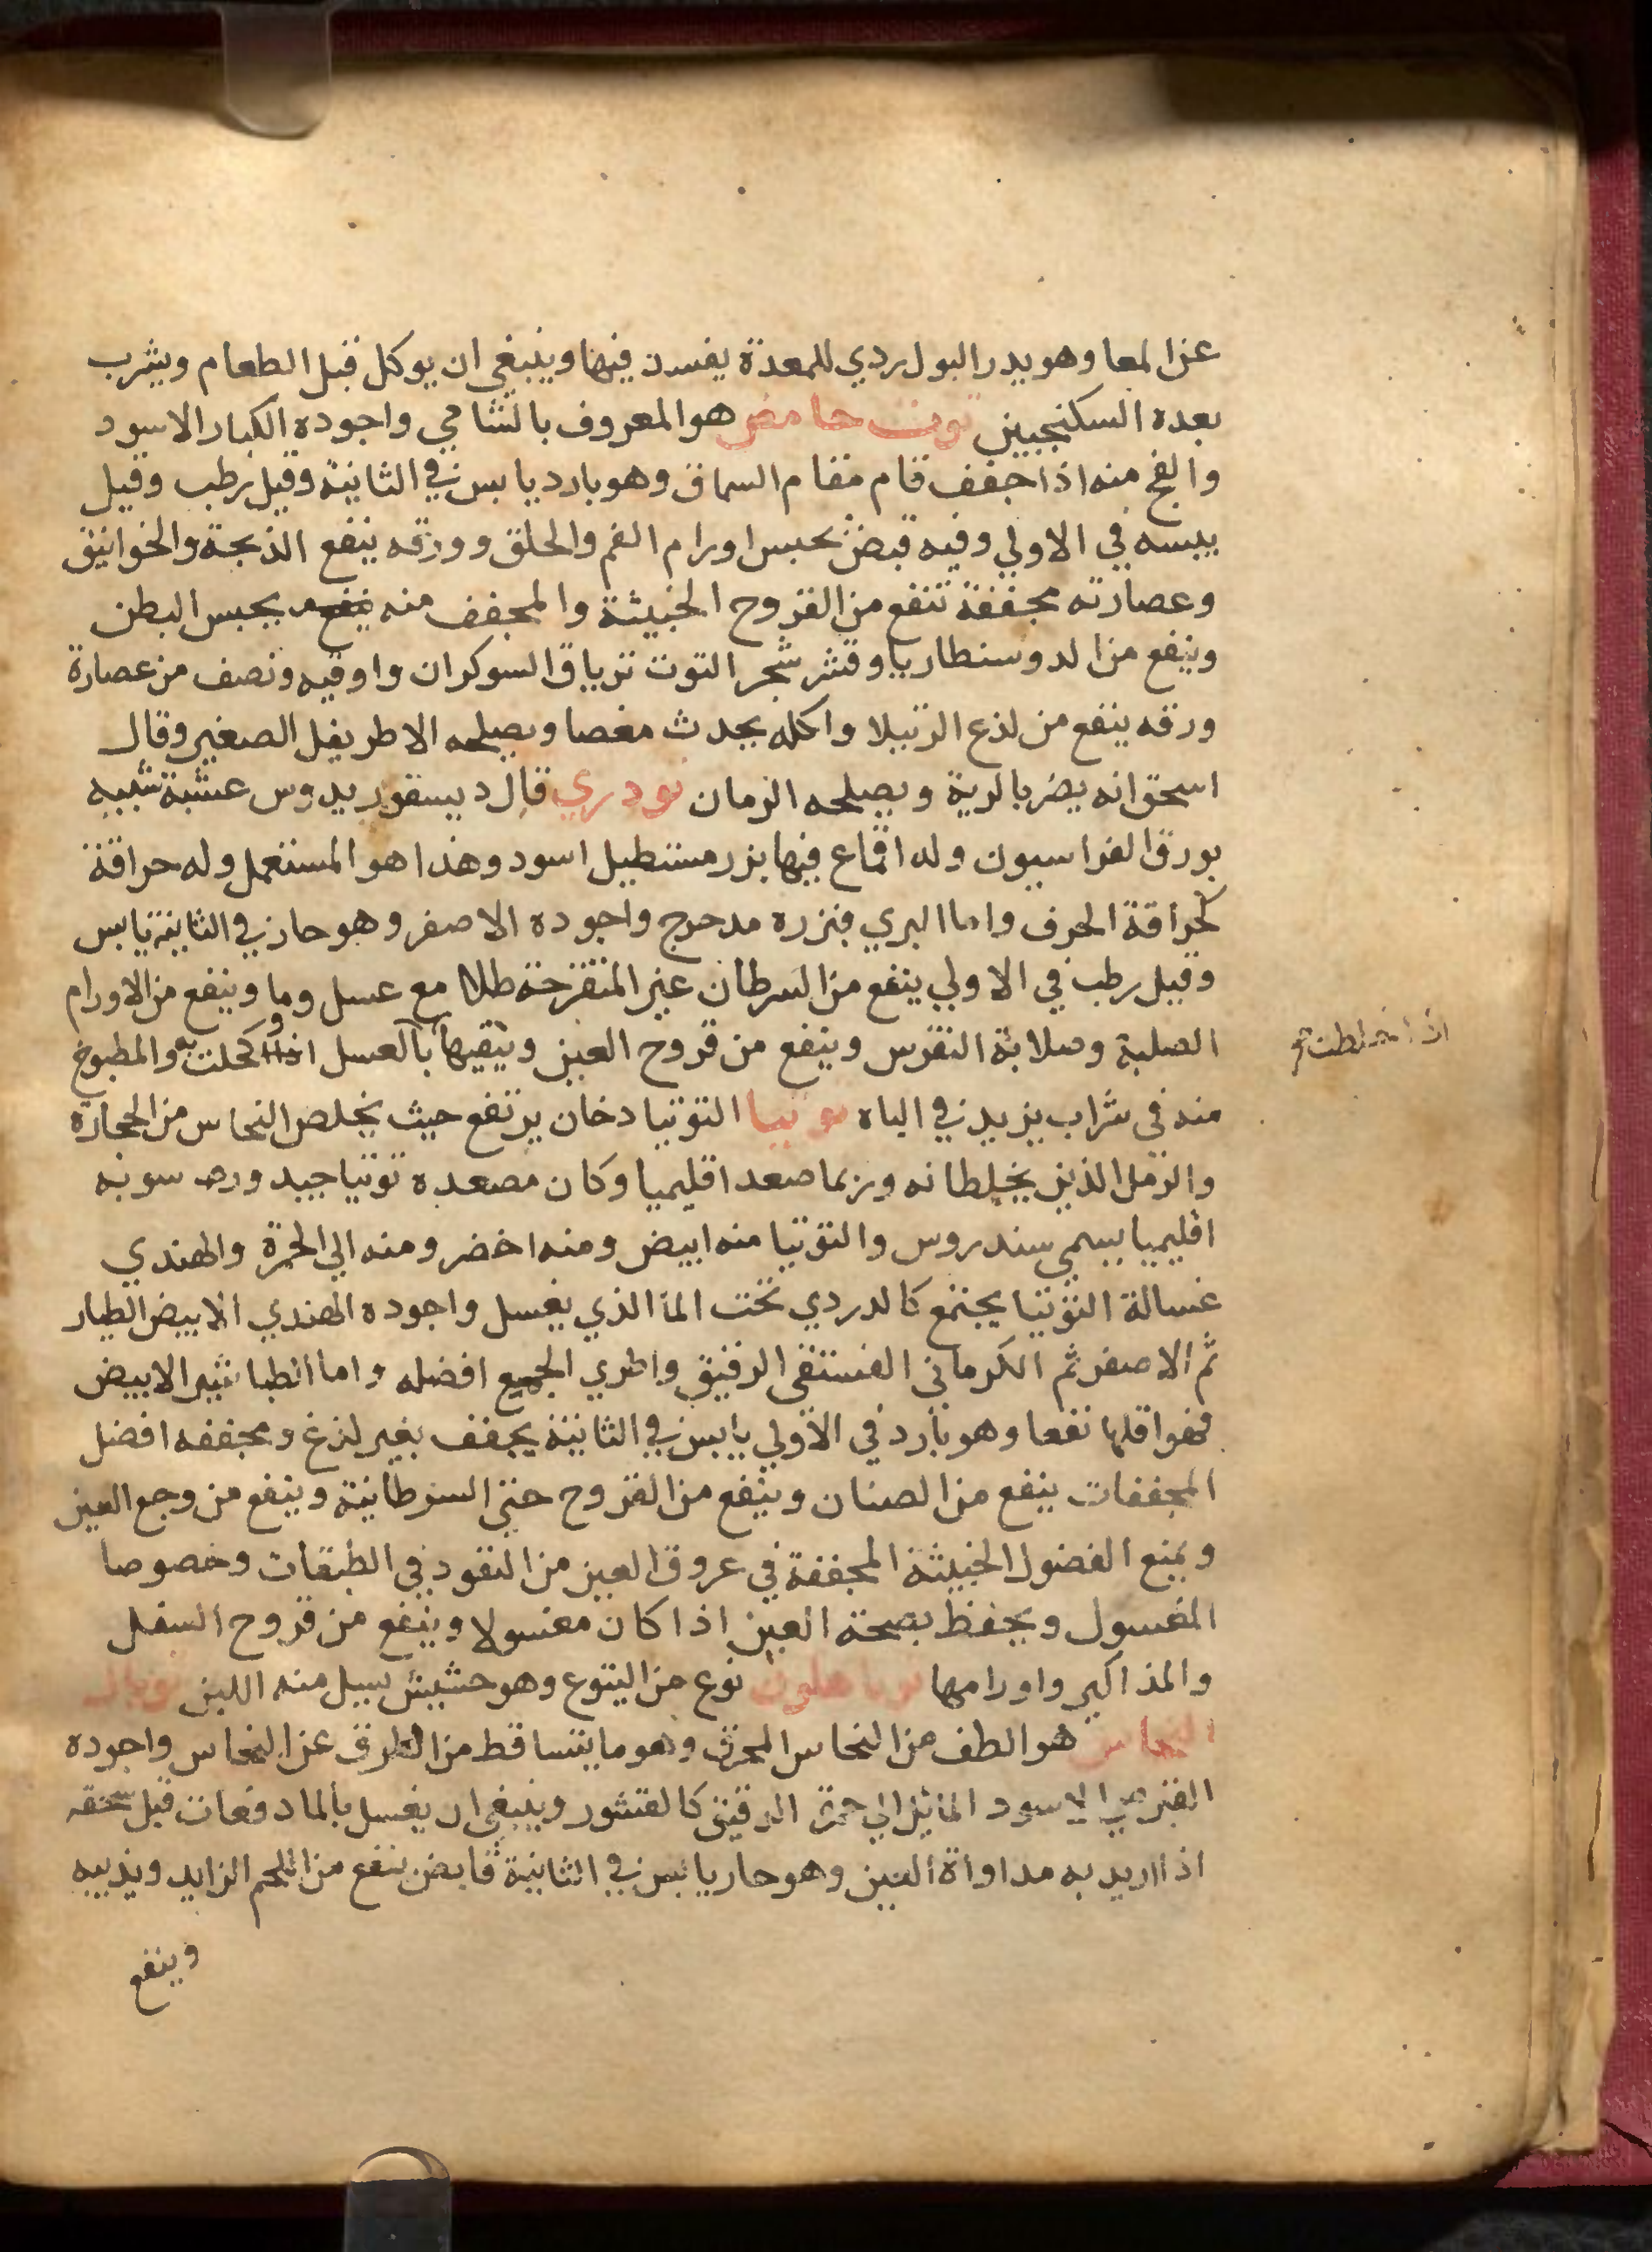 عن المعا وهو يدر البول ردي للمعدة يفسد فيها وينبغي ان يوكل قبل الطعام ويشرب
بعده السكنجبين توت حامض هو المعروف بالشامي واجوده الكبار الاسود
والفج منه اذا جفف قام مقام السماق وهو بارد يابس في الثانية وقيل رطب وقيل
يبسه في الاولي وفيه قبض يحبس اورام الفم والحلق وورقه ينفع الذبحة والخوانيق
وعصارته مجففة تنفع من القروح الخبيثة والمجفف منه يحبس البطن
وينفع من الدوسنطاريا وقشر شجر التوت ترياق السوكران واوقيه ونصف من عصارة
ورقه ينفع من لذع الرتيلا واكله يحدث مغصا ويصلحه الاطريفل الصغير وقال
اسحق انه يضر بالرية ويصلحه الرمان تودري قال ديسقوريدوس عشبة تشبيه
بورق الفراسيون وله اقماع فيها بزر مستطيل اسود وهذا هو المستعمل وله حراقة
كحراقة الحرف واما البري فبزره مدحرج واجوده الاصفر وهو حار في الثانية يابس
وقيل رطب في الاولي ينفع من السرطان غير المتقرحة طلا مع عسل وما وينفع من الاورام
الصلبة وصلابة النقرس وينفع من قروح العين وينقيها بالعسل اذا كحلت به والمطبوخ
اذا خلطت
منه في شراب يزيد في الباه توتيا التوتيا دخان يرتفع حيث يخلص النحاس من الحجارة
والرمل الذين يخلطانه وربما صعد اقليميا وكان مصعده توتيا جيد ورسوبه
اقليميا يسمي سندروس والتوتيا منه ابيض ومنه اخضر ومنه الي الحمرة والهندي
غسالة التوتيا يجتمع كالدردي تحت الما الذي يغسل واجوده الهندي الابيض الطيار
ثم الاصفر ثم الكرماني الفستقي الرقيق وطري الجميع افضله واما الطباشير الابيض
فهو اقلها نفعا وهو بارد في الاولي يابس في الثانية يجفف بغير لذغ ومجففه افضل
المجففات ينفع من الصنان وينفع من القروح حتي السرطانية وينفع من وجع العين
ويمنع الفضول الخبيثة المجففة في عروق العين من النفود في الطبقات وخصوصا
المغسول ويحفظ بصحة العين اذا كان مغسولا وينفع من قروح السفل
والمذاكير واورامها نوع من اليتوع وهو حشيش يسيل منه اللبن توبال
النحاس هو الطف من النحاس المحرق وهو ما يتساقط من الطرق عن النحاس واجوده
القبرصي الاسود المائل الي حمرة الرقيق كالقشور وينبغي ان يغسل بالما دفعات قبل سحقه
اذا اريد به مداواة العين وهو حار يابس في الثانية قابض ينفع من اللحم الزايد ويذيبه
وينفع